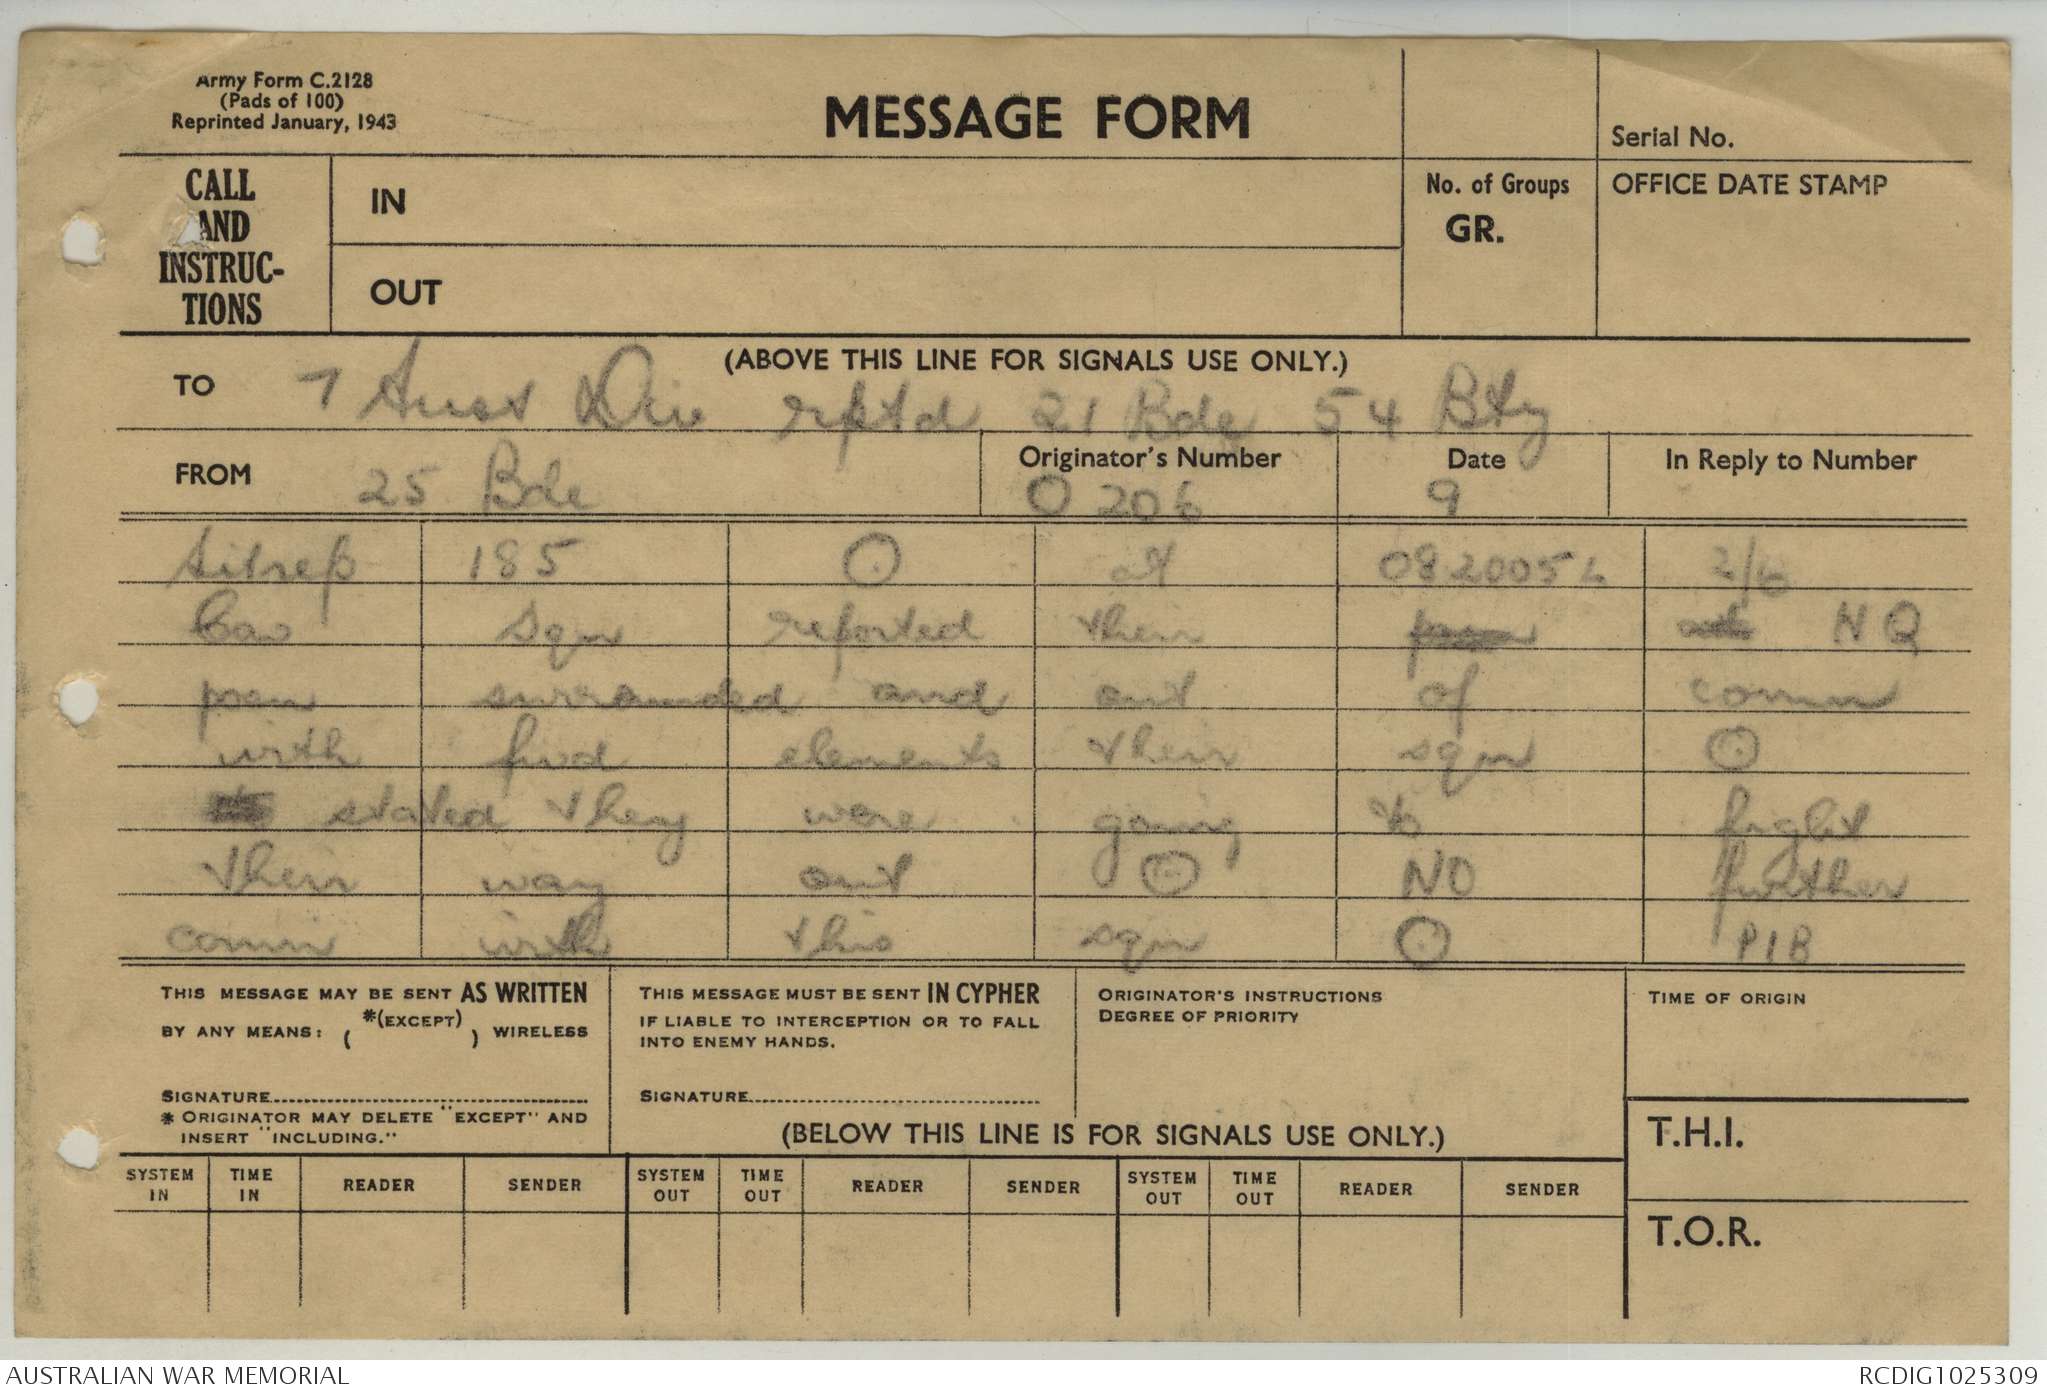 Army Form C.2128
(Pads of 100)
Reprinted January, 1943
MESSAGE FORM
Serial No.
CALL AND INSTRUC-TIONS
IN
OUT
No. of Groups
GR.
OFFICE DATE STAMP
(ABOVE THIS LINE FOR SIGNALS USE ONLY.)
TO 7 Aust Div rptd 21 Bde 54 Bty
FROM 25 Bde
Originator's Number O 206
Date 9
In Reply to Number
Sitrep 185 ⊙ at 082005L 2/6
Cav Sqn reported their HQ
posn surrounded and out of comm
with fwd elements their sqn ⊙
stated they were going to fight
their way out ⊙ NO further
comm with this sqn ⊙ P1B
THIS MESSAGE MAY BE SENT AS WRITTEN
BY ANY MEANS: ( *(EXCEPT) ) WIRELESS
SIGNATURE
* ORIGINATOR MAY DELETE "EXCEPT" AND
INSERT "INCLUDING."
THIS MESSAGE MUST BE SENT IN CYPHER
IF LIABLE TO INTERCEPTION OR TO FALL
INTO ENEMY HANDS.
SIGNATURE
ORIGINATOR'S INSTRUCTIONS
DEGREE OF PRIORITY
TIME OF ORIGIN
(BELOW THIS LINE IS FOR SIGNALS USE ONLY.)
T.H.I.
SYSTEM IN TIME IN READER SENDER SYSTEM OUT TIME OUT READER SENDER SYSTEM OUT TIME OUT READER SENDER
T.O.R.
AUSTRALIAN WAR MEMORIAL
RCDIG1025309